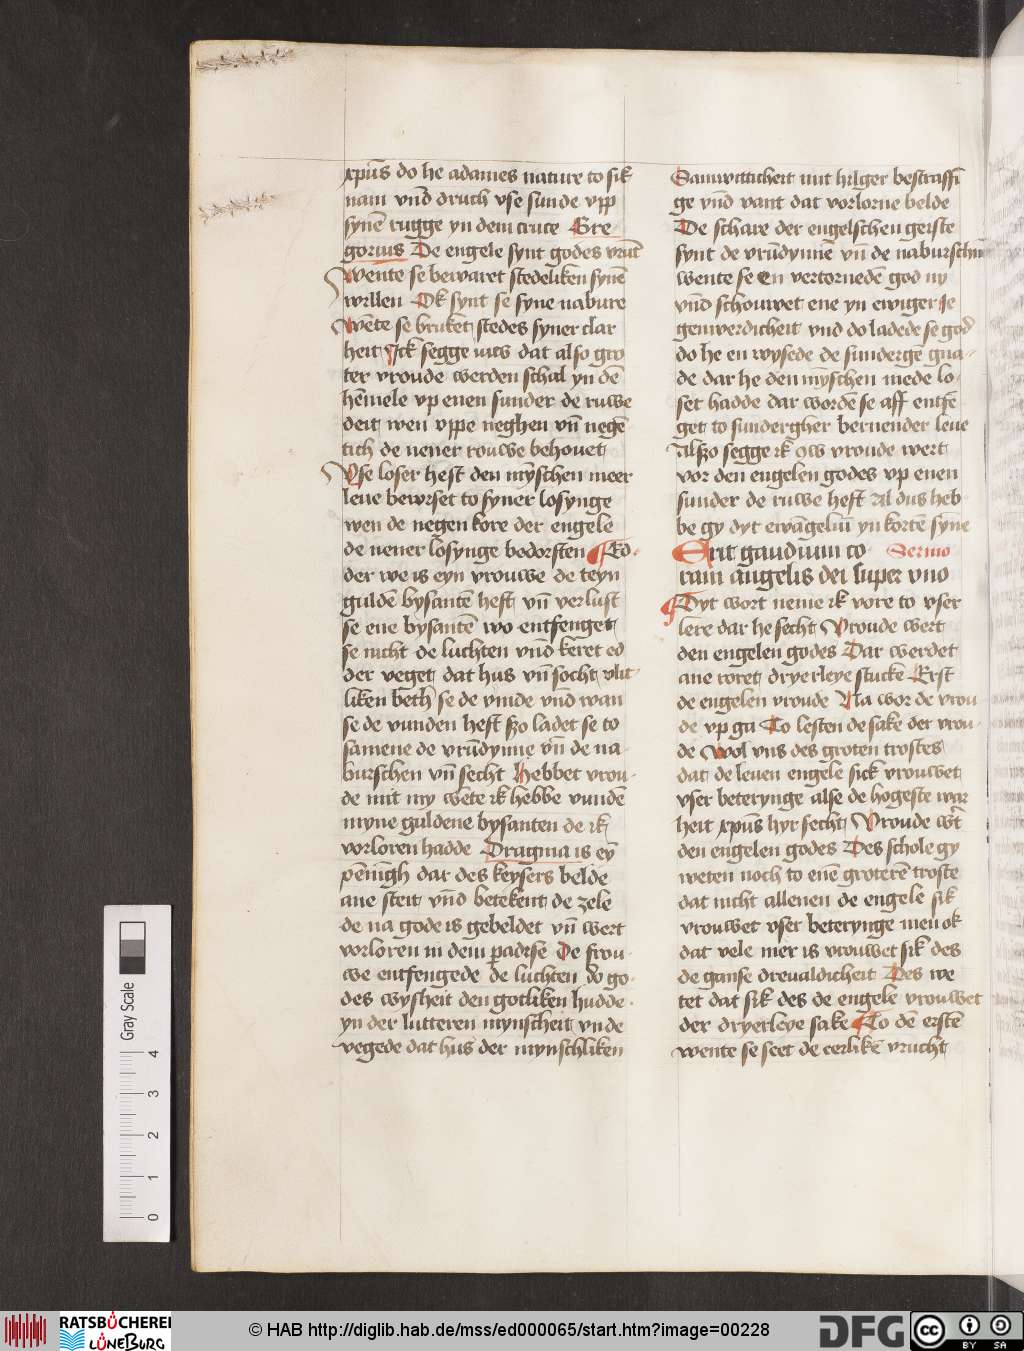 xpūs do he adames nature to sik
nam vnd druch vse sunde vpp
synē rugge yn dem cruce Gre
gorius De engele synt godes vrūt
Wente se bewaret stedeliken synē
wyllen Ok synt se syne nabure
Wēte se bruket stedes syner clar
heit Ick segge iuw dat also gro
ter vroude werden schal yn dē
hēmele vp enen sunder de ruwe
deit wen vppe neghen vn̄ negē
tich de nener rouwe behouet
Vse loser heft den mȳschen meer
leue bewyset to syner losynge
wen de negen kore der engele
de nener losynge bodorsten Ed
der we is eyn vrouwe de teyn
guldē bysantē heft vn̄ verlust
se ene bysantē wo entfenget
se nicht de luchten vnd keret ed
der veget dat hus vn̄ socht vlit
liken beth se de vinde vnd wan
se de vunden heft szo ladet se to
samene de vrūdynnie vn̄ de na
burschen vn̄ secht Hebbet vrou
de mit my wēte ik hebbe vundē
myne guldene bysanten de ik
vorloren hadde Dragma is eȳ
pēnīgh dar des keysers belde
ane steit vnd betekent de zele
de na gode is gebeldet vn̄ wert
vorloren in dem padise De frou
we entfengede de luchten do go
des wysheit den gotliken hudde
yn der lutteren mynscheit vnde
vegede dat hus der mynschliken
Samwitticheit mit hilger bestraffī
ge vnd vant dat vorlorne belde
De schare der engelschen geiste
synt de vrūdynnē vn̄ de naburschin
wente se en vertornedē god ny
vnd schouwet ene yn ewiger ie
genwerdicheit vnd do ladede se god
do he en wysede de sundergē gna
de dar he den mȳschen mede lo
set hadde dar wordē se aff entfē
get to sundergher bernender leue
Alszo segge ik ow vroude wert
vor den engelen godes vp enen
sunder de ruwe heft Al dus heb
be gy dyt ewāgeliū yn kortē synē
Erit gaudium co Sermo
ram angelis dei super vno
Dyt wort neme ik vore to vser
lere dar he secht Vroude wert
den engelen godes Dar werdet
ane roret dryerleye stucke Erst
de engelen vroude Na wor de vrou
de vp ga To lesten de sake der vrou
de Wol vns des groten trostes
dat de leuen engele sick vrouwet
vser beterynge alse de hogeste war
heit xpūs hyr secht Vroude wt
den engelen godes Des schole gy
weten noch to enē groterē troste
dat nicht allenen de engele sik
vrouwet vser beterynge men ok
dat vele mer is vrouwet sik des
de ganse dreualdicheit Des we
tet dat sik des de engele vrouwet
der dryerleye sake To dē erstē
wente se seet de eerlikē vrucht
Gray Scale
0 1 2 3 4
RATSBÜCHEREI
LÜNEBURG
© HAB http://diglib.hab.de/mss/ed000065/start.htm?image=00228
DFG
cc BY SA